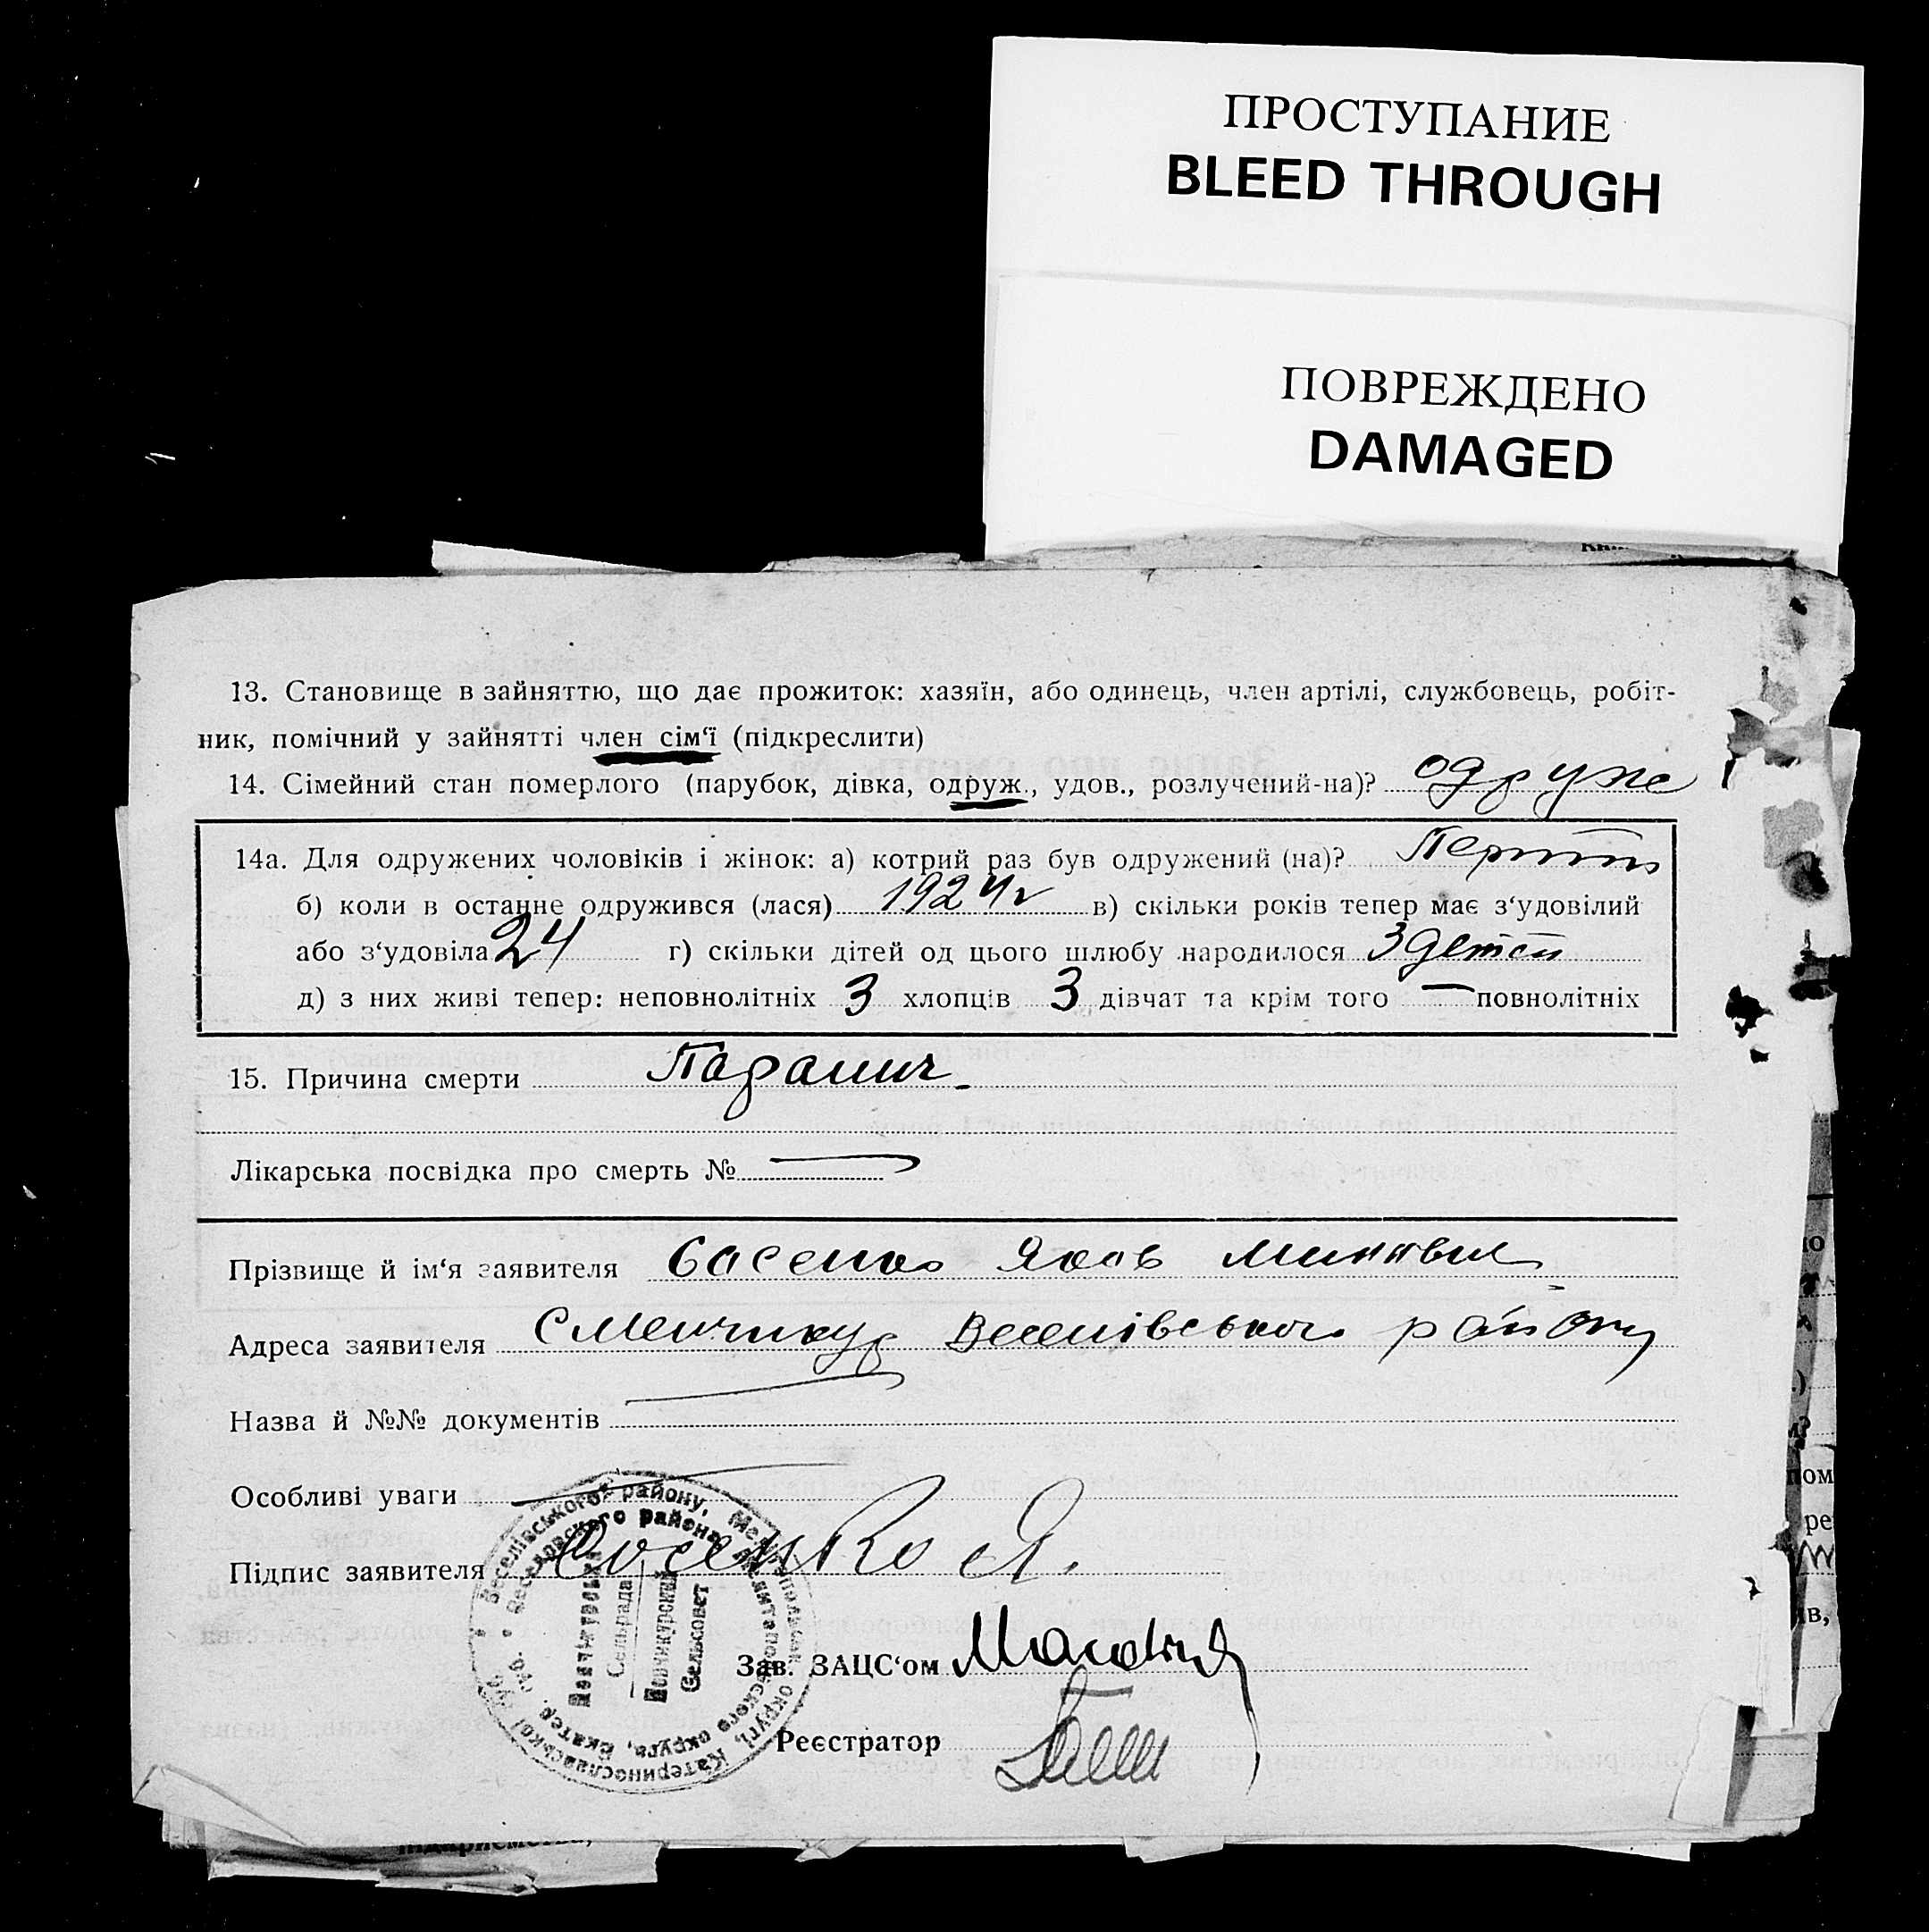 ПРОСТУПАНИЕ
BLEED THROUGH
ПОВРЕЖДЕНО
DAMAGED
13. Становище в зайняттю, що дає прожиток: хазяїн, або одинець, член артілі, службовець, робіт-
ник, помічний у зайнятті член сім'ї (підкреслити)
14. Сімейний стан померлого (парубок, дівка, одруж., удов., розлучений-на)? одруже
14а. Для одружених чоловіків і жінок: а) котрий раз був одружений (на)?
б) коли в останне одружився (лася) 1924 г в) скільки років тепер має з'удовілий
або з'удовіла 24 г) скільки дітей од цього шлюбу народилося 3 детей
д) з них живі тепер: неповнолітніх 3 хлопців 3 дівчат та крім того — повнолітніх
15. Причина смерти
Лікарська посвідка про смерть № —
Прізвище й ім'я заявителя Яков
Адреса заявителя Веселівського району
Назва й №№ документів —
Особливі уваги —
Підпис заявителя
Зав. ЗАЦС'ом
Реєстратор
Веселівського району, Мелітопольськ. округі, Катеринославської губ.
Веселовского района, Мелитопольского округа, Екатер. губ.
Сельрада
Сельсовет